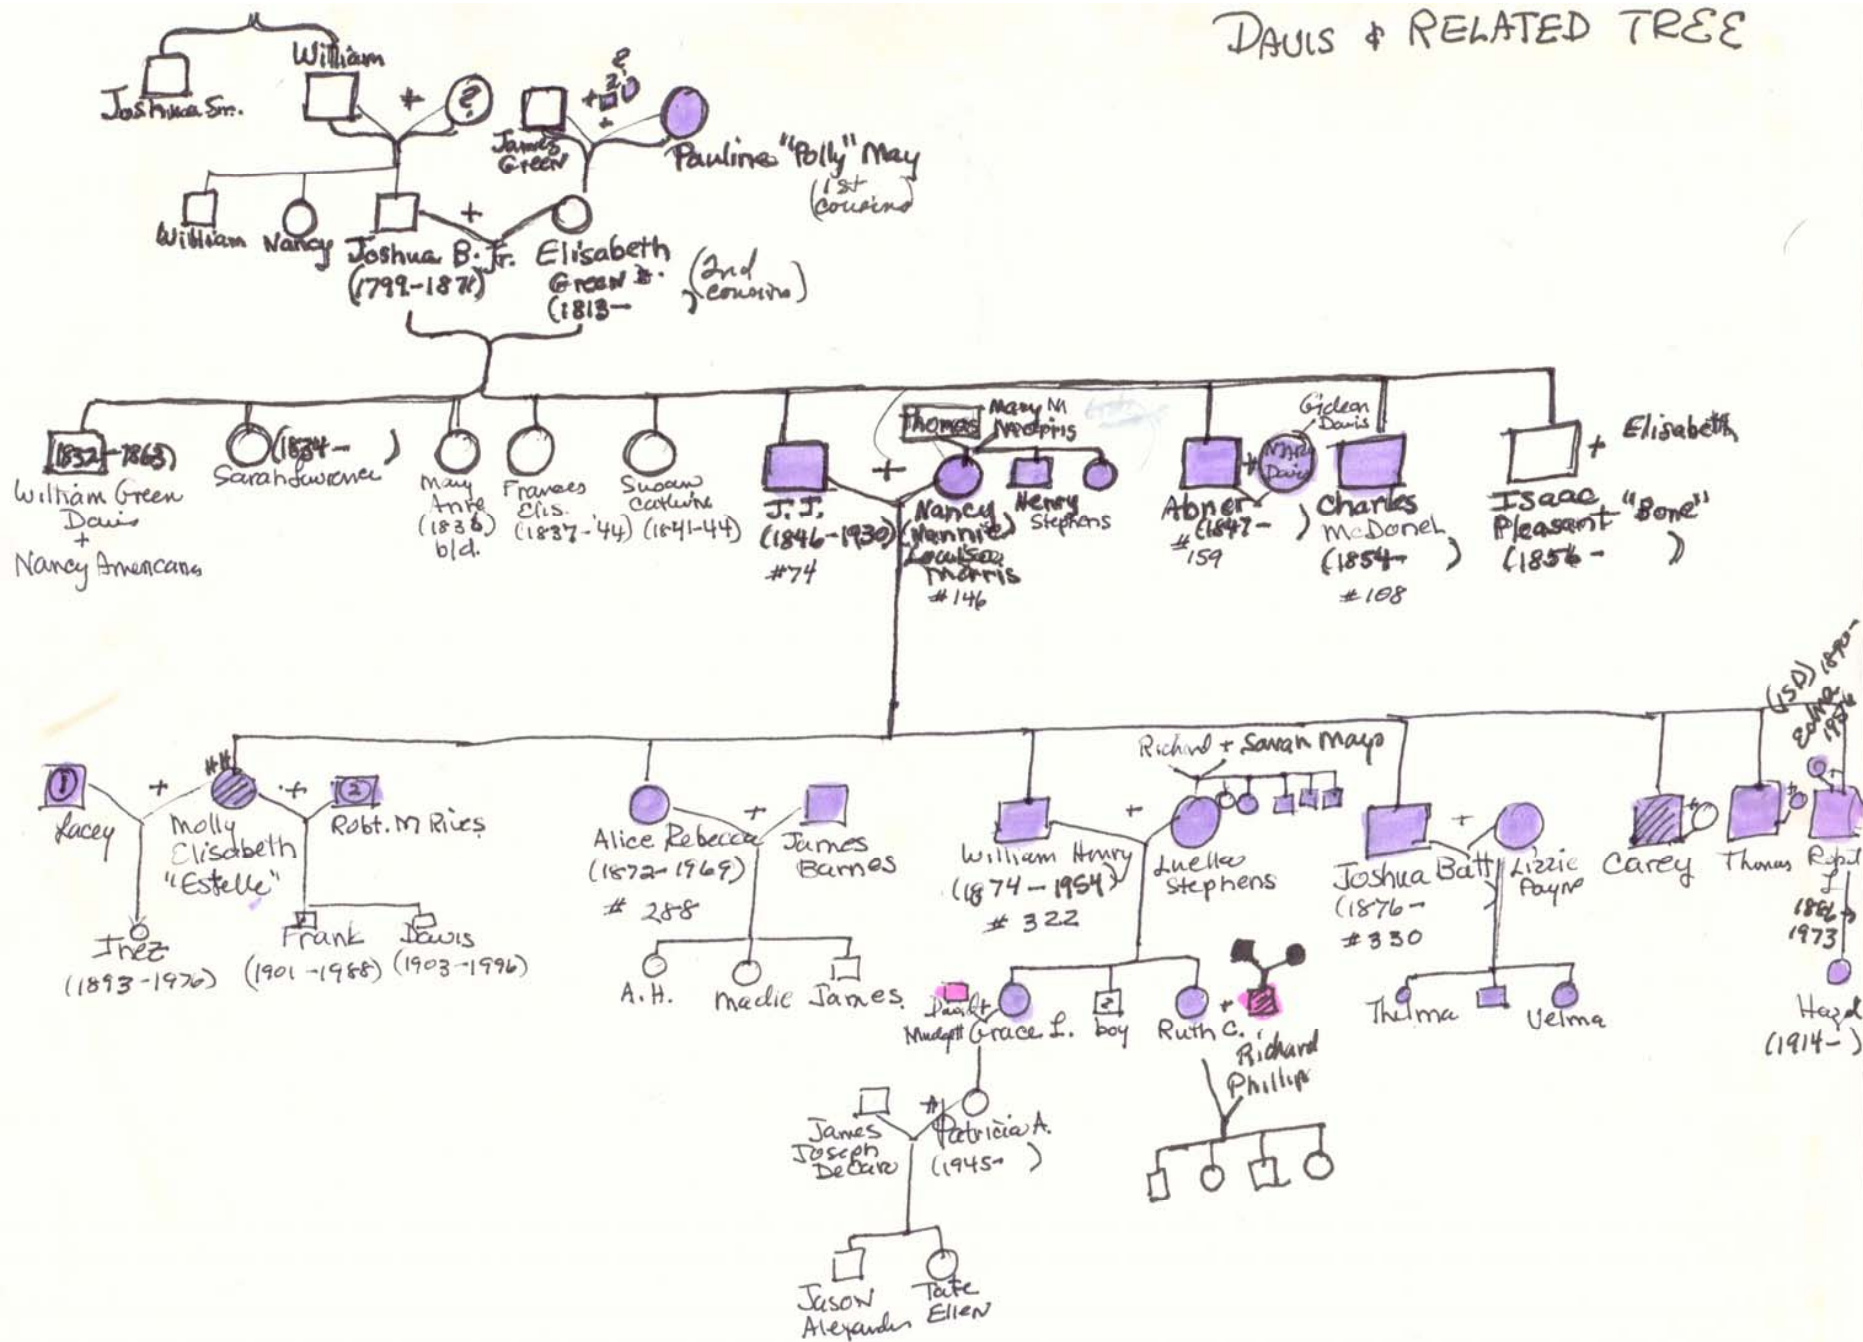 DAVIS & RELATED TREE
William
Joshua Sr.
+
?
James
Green
+
2
?
+
Pauline "Polly" May
(1st
cousins)
William
Nancy
Joshua B. Jr.
(1799-1871)
+
Elisabeth
Green
(1813-
)
(2nd
cousins)
(1832-1863)
William Green
Davis
+
Nancy Americana
(1834- )
Sarah Lawrence
Mary
Anne
(1836)
b/d.
Frances
Elis.
(1837-'44)
Susan
Catherine
(1841-44)
J. J.
(1846-1930)
#74
+
Thomas
Mary M
Nancy
(Nannie)
Morris
#146
Henry
Stephens
Abner
(1847- )
#159
+
Mary
Davis
Gideon
Davis
Charles
McDonel
(1854- )
#108
Isaac
Pleasant "Bone"
(1856- )
+ Elisabeth
1
Lacey
+
##
Molly
Elisabeth
"Estelle"
+
2
Robt. M Rives
Inez
(1893-1976)
Frank
(1901-1988)
Davis
(1903-1996)
Alice Rebecca
(1872-1969)
# 288
+
James
Barnes
A.H.
Madie
James
William Henry
(1874-1954)
# 322
+
Richard + Sarah Mays
Luella
Stephens
Joshua Batt
(1876-
#330
+
Lizzie
Payne
Carey
+
Thomas
+
(ISD) 1890-
Edna
Robt
L
1886-
1973
+
Hazel
(1914- )
+
Grace L.
2
boy
Ruth C.
+
Richard
Phillips
Thelma
Velma
James
Joseph
DeCaro
+
Patricia A.
(1945- )
Jason
Alexander
Tate
Ellen